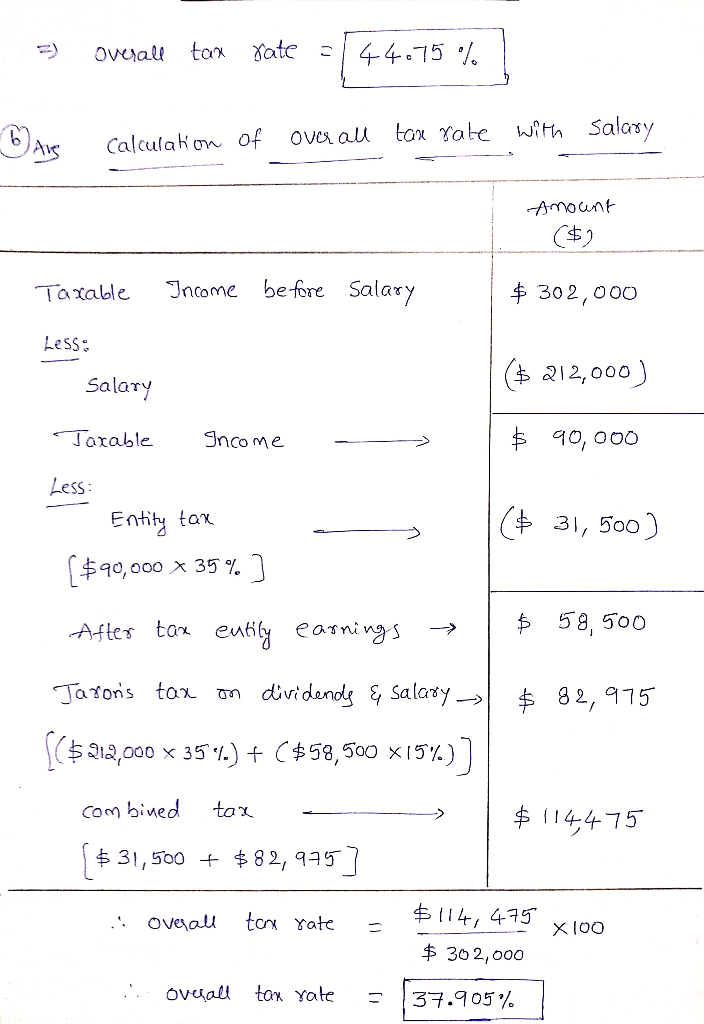 =) overall tax rate = 44.75 %
(b) Ans Calculation of overall tax rate with Salary
Amount
($)
Taxable Income before Salary $ 302,000
Less:
Salary ($ 212,000)
Taxable Income → $ 90,000
Less:
Entity tax → ($ 31,500)
[$90,000 × 35 %]
After tax entity earnings → $ 58,500
Taron's tax on dividends & Salary → $ 82,975
[($212,000 × 35%) + ($58,500 ×15%)]
combined tax → $ 114,475
[$ 31,500 + $82,975]
∴ overall tax rate = $114,475 ×100
$ 302,000
∴ overall tax rate = 37.905%